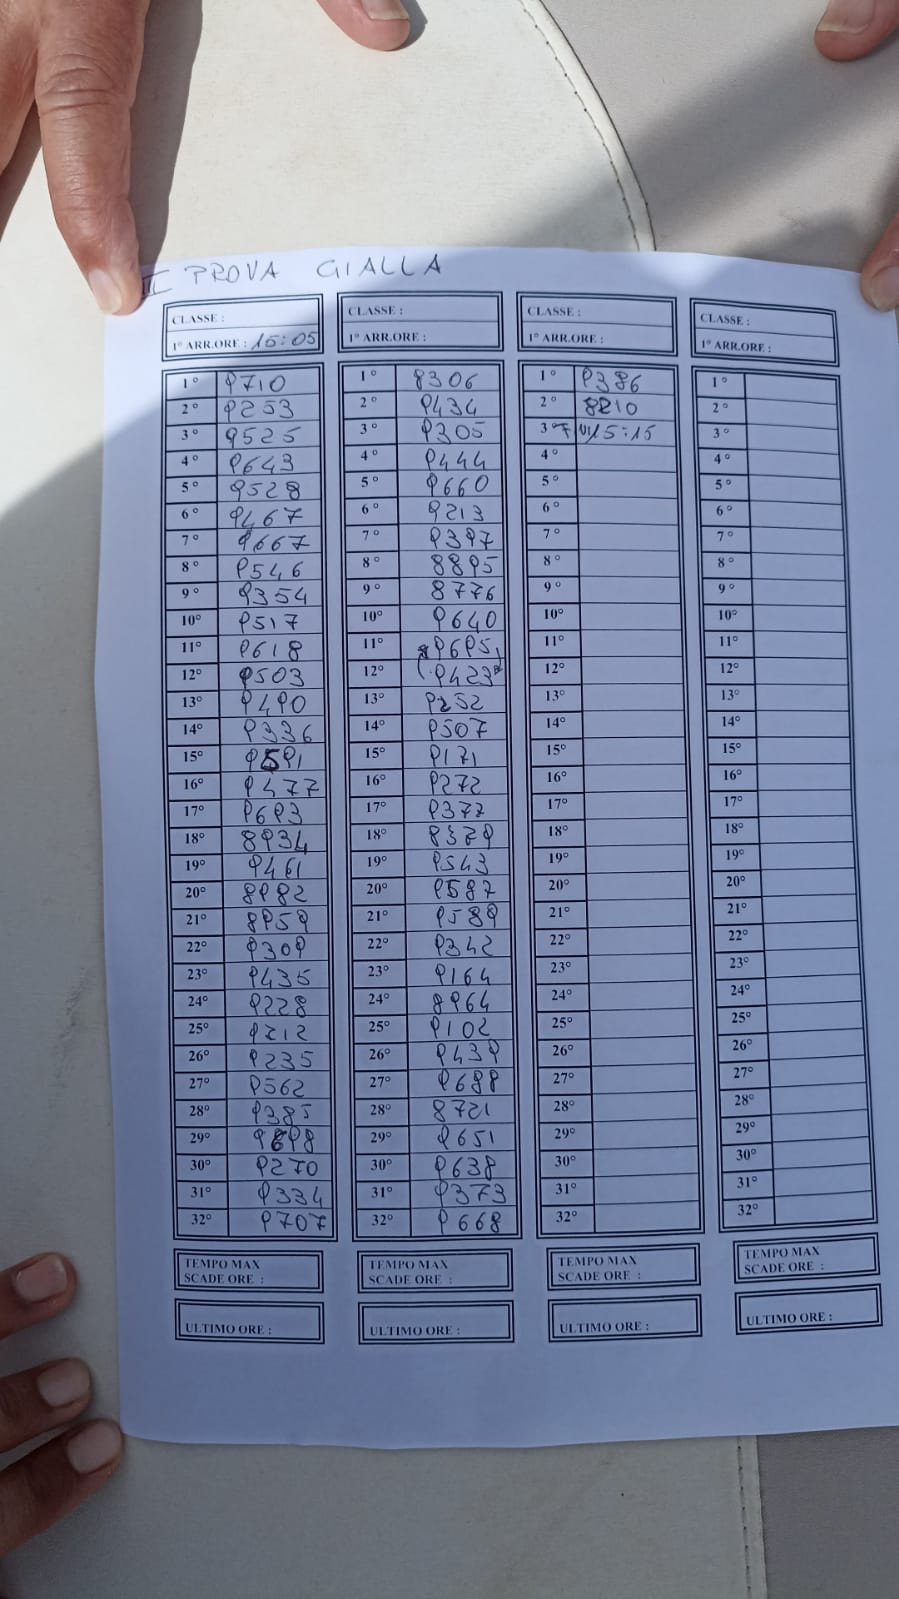 II PROVA GIALLA
CLASSE :
1° ARR.ORE : 15:05
1° 9710
2° 9253
3° 9525
4° 9643
5° 9528
6° 9467
7° 9667
8° 9546
9° 9354
10° 9517
11° 9618
12° 9503
13° 9490
14° 9336
15° 9591
16° 9477
17° 9693
18° 8934
19° 9461
20° 8982
21° 8959
22° 9309
23° 9435
24° 9228
25° 9212
26° 9235
27° 9562
28° 9385
29°
30° 9270
31° 9334
32° 9707
TEMPO MAX
SCADE ORE :
ULTIMO ORE :
CLASSE :
1° ARR.ORE :
1° 8306
2° 9434
3° 9305
4° 9444
5° 9660
6° 9213
7° 9397
8° 8895
9° 8776
10° 9640
11° 9695
12° 9423
13° 9252
14° 9507
15° 9171
16° 9272
17° 9372
18° 8379
19° 9543
20° 9587
21° 9589
22° 9342
23° 9164
24° 8964
25° 9102
26° 9439
27° 9688
28° 8721
29° 9651
30° 9638
31° 9373
32° 9668
TEMPO MAX
SCADE ORE :
ULTIMO ORE :
CLASSE :
1° ARR.ORE :
1° 9386
2° 8210
3° 15:15
4°
5°
6°
7°
8°
9°
10°
11°
12°
13°
14°
15°
16°
17°
18°
19°
20°
21°
22°
23°
24°
25°
26°
27°
28°
29°
30°
31°
32°
TEMPO MAX
SCADE ORE :
ULTIMO ORE :
CLASSE :
1° ARR.ORE :
1°
2°
3°
4°
5°
6°
7°
8°
9°
10°
11°
12°
13°
14°
15°
16°
17°
18°
19°
20°
21°
22°
23°
24°
25°
26°
27°
28°
29°
30°
31°
32°
TEMPO MAX
SCADE ORE :
ULTIMO ORE :